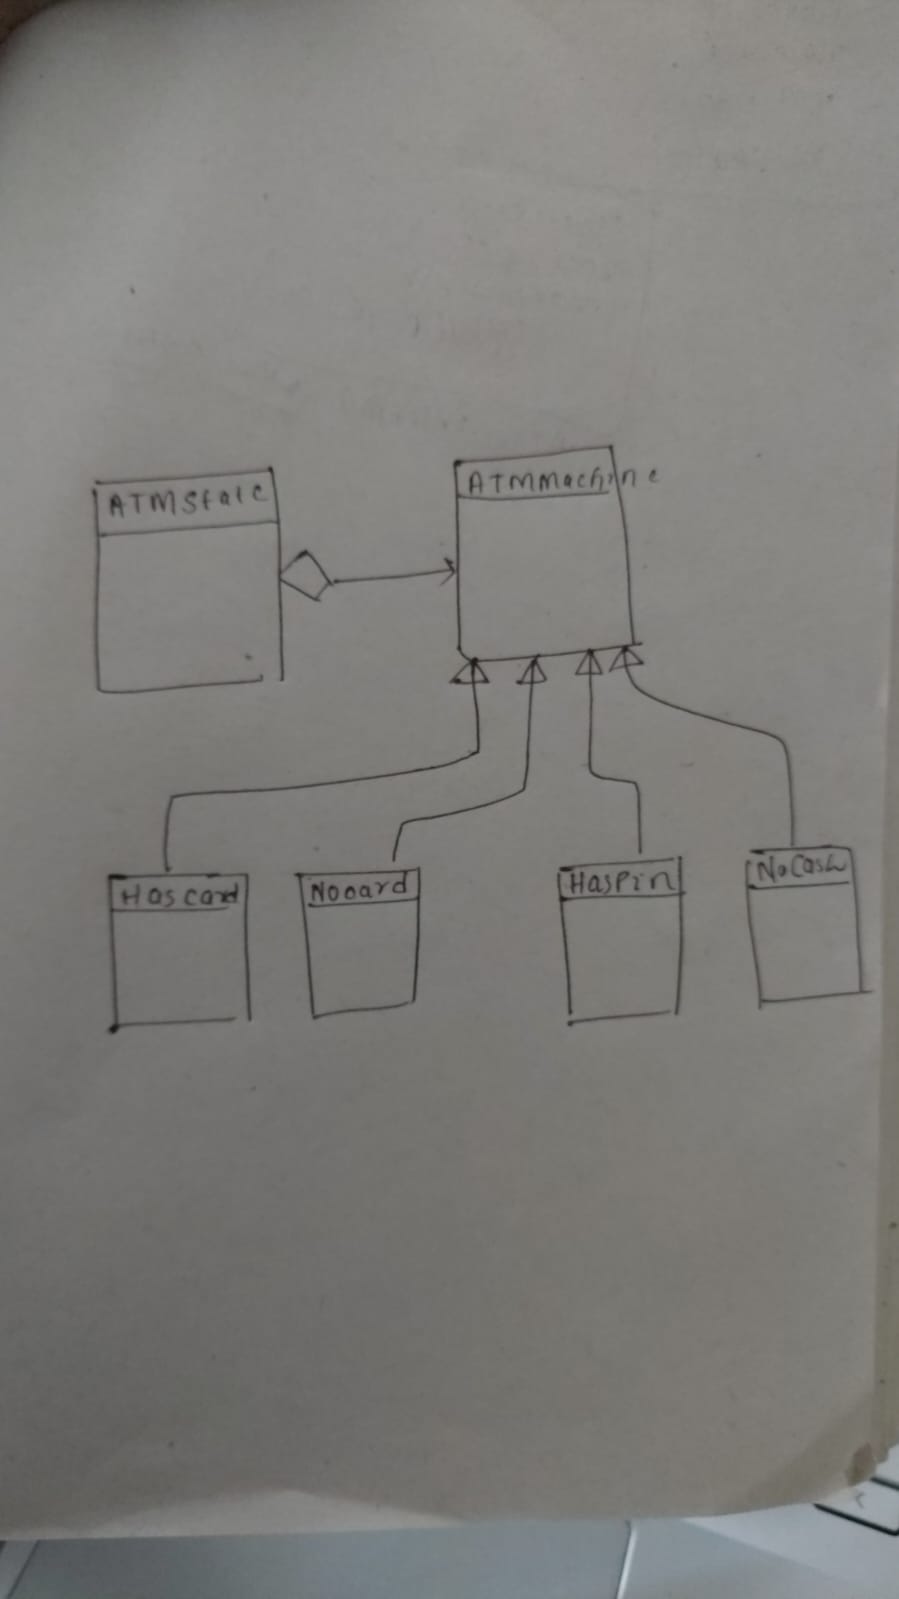 ATMState
ATMMachine
Hascard
Nocard
HasPin
NoCash